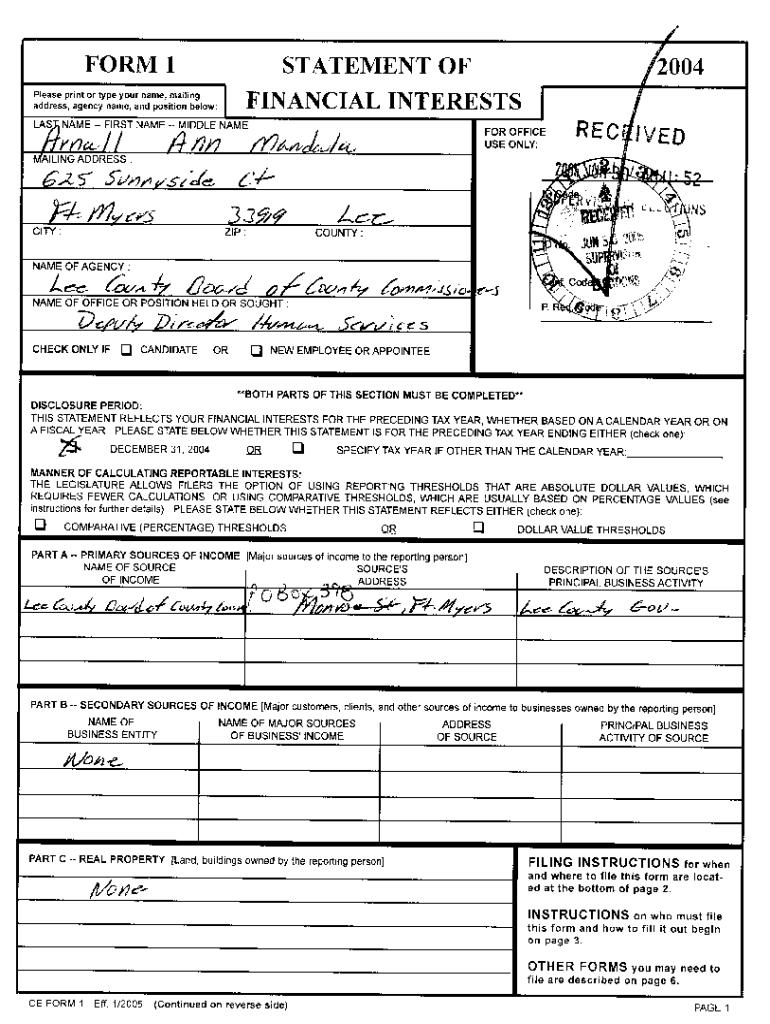 FORM 1 STATEMENT OF 2004
Please print or type your name, mailing
address, agency name, and position below:
FINANCIAL INTERESTS
LAST NAME -- FIRST NAME -- MIDDLE NAME
Arnall Ann
FOR OFFICE
USE ONLY:
RECEIVED
MAILING ADDRESS :
625 Sunnyside Ct
52
Ft. Myers 33919 Lee
CITY : ZIP : COUNTY :
RECEIVED
JUN
NAME OF AGENCY :
Lee County Board of County Commissioners
NAME OF OFFICE OR POSITION HELD OR SOUGHT :
P. Req. Code
Deputy Director Human Services
CHECK ONLY IF CANDIDATE OR NEW EMPLOYEE OR APPOINTEE
**BOTH PARTS OF THIS SECTION MUST BE COMPLETED**
DISCLOSURE PERIOD:
THIS STATEMENT REFLECTS YOUR FINANCIAL INTERESTS FOR THE PRECEDING TAX YEAR, WHETHER BASED ON A CALENDAR YEAR OR ON
A FISCAL YEAR PLEASE STATE BELOW WHETHER THIS STATEMENT IS FOR THE PRECEDING TAX YEAR ENDING EITHER (check one):
DECEMBER 31, 2004 OR SPECIFY TAX YEAR IF OTHER THAN THE CALENDAR YEAR:
MANNER OF CALCULATING REPORTABLE INTERESTS:
THE LEGISLATURE ALLOWS FILERS THE OPTION OF USING REPORTING THRESHOLDS THAT ARE ABSOLUTE DOLLAR VALUES, WHICH
REQUIRES FEWER CALCULATIONS OR USING COMPARATIVE THRESHOLDS, WHICH ARE USUALLY BASED ON PERCENTAGE VALUES (see
instructions for further details) PLEASE STATE BELOW WHETHER THIS STATEMENT REFLECTS EITHER (check one):
COMPARATIVE (PERCENTAGE) THRESHOLDS OR DOLLAR VALUE THRESHOLDS
PART A -- PRIMARY SOURCES OF INCOME [Major sources of income to the reporting person]
NAME OF SOURCE
OF INCOME
SOURCE'S
ADDRESS
DESCRIPTION OF THE SOURCE'S
PRINCIPAL BUSINESS ACTIVITY
PO Box 398
Lee County Board of County Comm. Monroe St, Ft. Myers Lee County Gov-
PART B -- SECONDARY SOURCES OF INCOME [Major customers, clients, and other sources of income to businesses owned by the reporting person]
NAME OF
BUSINESS ENTITY
NAME OF MAJOR SOURCES
OF BUSINESS' INCOME
ADDRESS
OF SOURCE
PRINCIPAL BUSINESS
ACTIVITY OF SOURCE
None
PART C -- REAL PROPERTY [Land, buildings owned by the reporting person]
None
FILING INSTRUCTIONS for when
and where to file this form are locat-
ed at the bottom of page 2.
INSTRUCTIONS on who must file
this form and how to fill it out begin
on page 3.
OTHER FORMS you may need to
file are described on page 6.
CE FORM 1 Eff. 1/2005 (Continued on reverse side) PAGE 1